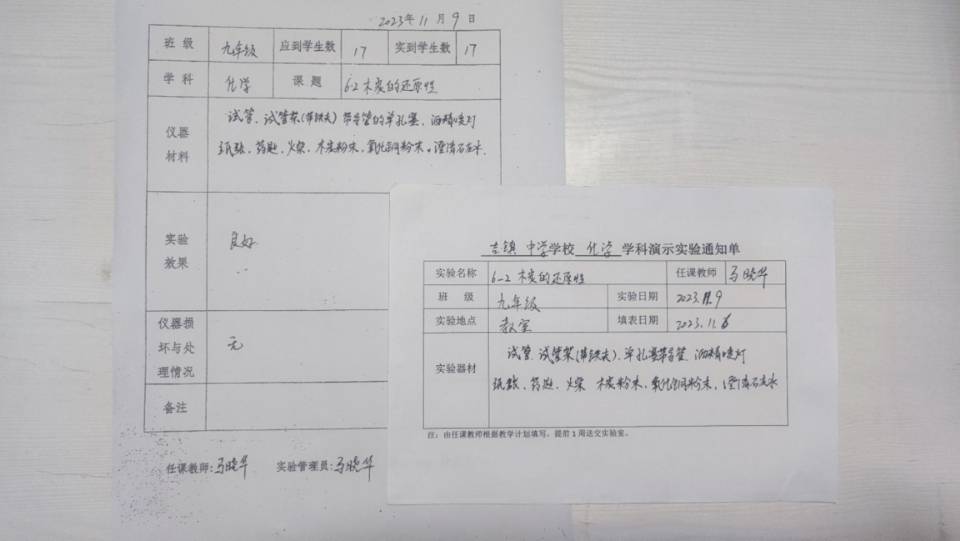 2023年11月9日
班级 九年级 应到学生数 17 实到学生数 17
学科 化学 课题 6-2木炭的还原性
仪器材料
试管、试管架(带铁夫)带导管的单孔塞、酒精喷灯
纸张、药匙、火柴、木炭粉末、氧化铜粉末。澄清石灰水.
实验效果 良好
仪器损坏与处理情况 无
备注
任课教师:马晓华 实验管理员:马晓华
镇 中学学校 化学 学科演示实验通知单
实验名称 6-2 木炭的还原性 任课教师 马晓华
班级 九年级 实验日期 2023.11.9
实验地点 教室 填表日期 2023.11.6
实验器材
试管、试管架(带铁夫)、单孔塞带导管、酒精喷灯
纸张、药匙、火柴 木炭粉末、氧化铜粉末、澄清石灰水
注:由任课教师根据教学计划填写,提前1周送交实验室。